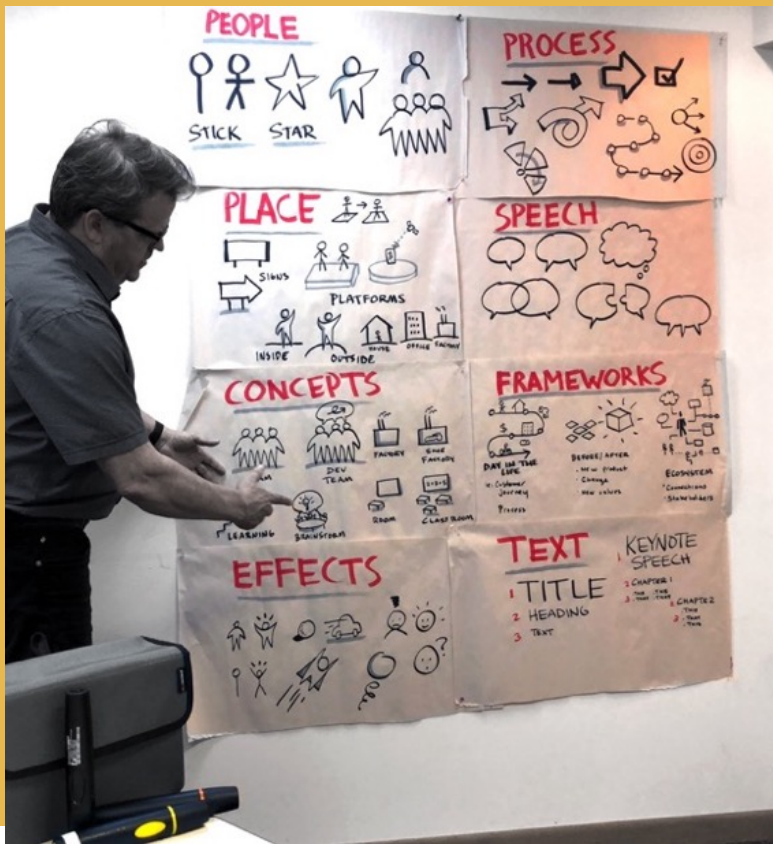 PEOPLE
STICK STAR
PROCESS
PLACE
SIGNS
PLATFORMS
INSIDE OUTSIDE HOUSE OFFICE FACTORY
SPEECH
CONCEPTS
DEV
TEAM
FACTORY
FACTORY
LEARNING BRAINSTORM ROOM CLASSROOM
FRAMEWORKS
DAY IN THE
LIFE
Customer
Journey
Process
BEFORE/AFTER
New product
Change
New values
ECOSYSTEM
Connections
Stakeholders
EFFECTS
?
TEXT
1 TITLE
2 HEADING
3 TEXT
1 KEYNOTE
SPEECH
2 CHAPTER 1
2 CHAPTER 2